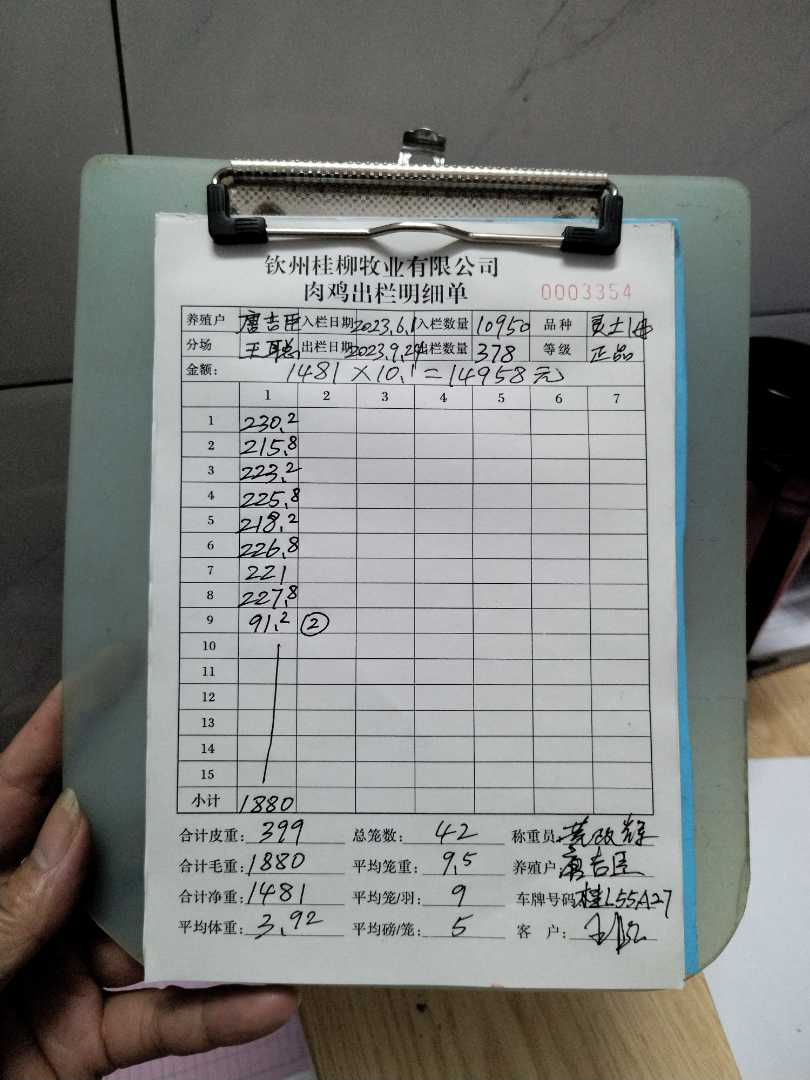 钦州桂柳牧业有限公司
肉鸡出栏明细单 0003354
养殖户 唐吉臣 入栏日期 2023.6.1 入栏数量 10950 品种
分场 王聪 出栏日期 2023.9.24 出栏数量 378 等级 正品
金额: 1481×10.1=14958元
1 2 3 4 5 6 7
1 230.2
2 215.8
3 223.2
4 225.8
5 218.2
6 226.8
7 221
8 227.8
9 91.2 ②
10
11
12
13
14
15
小计 1880
合计皮重: 399 总笼数: 42 称重员: 黄改辉
合计毛重: 1880 平均笼重: 9.5 养殖户: 唐吉臣
合计净重: 1481 平均笼/羽: 9 车牌号码: 桂L55A27
平均体重: 3.92 平均磅/笼: 5 客户: